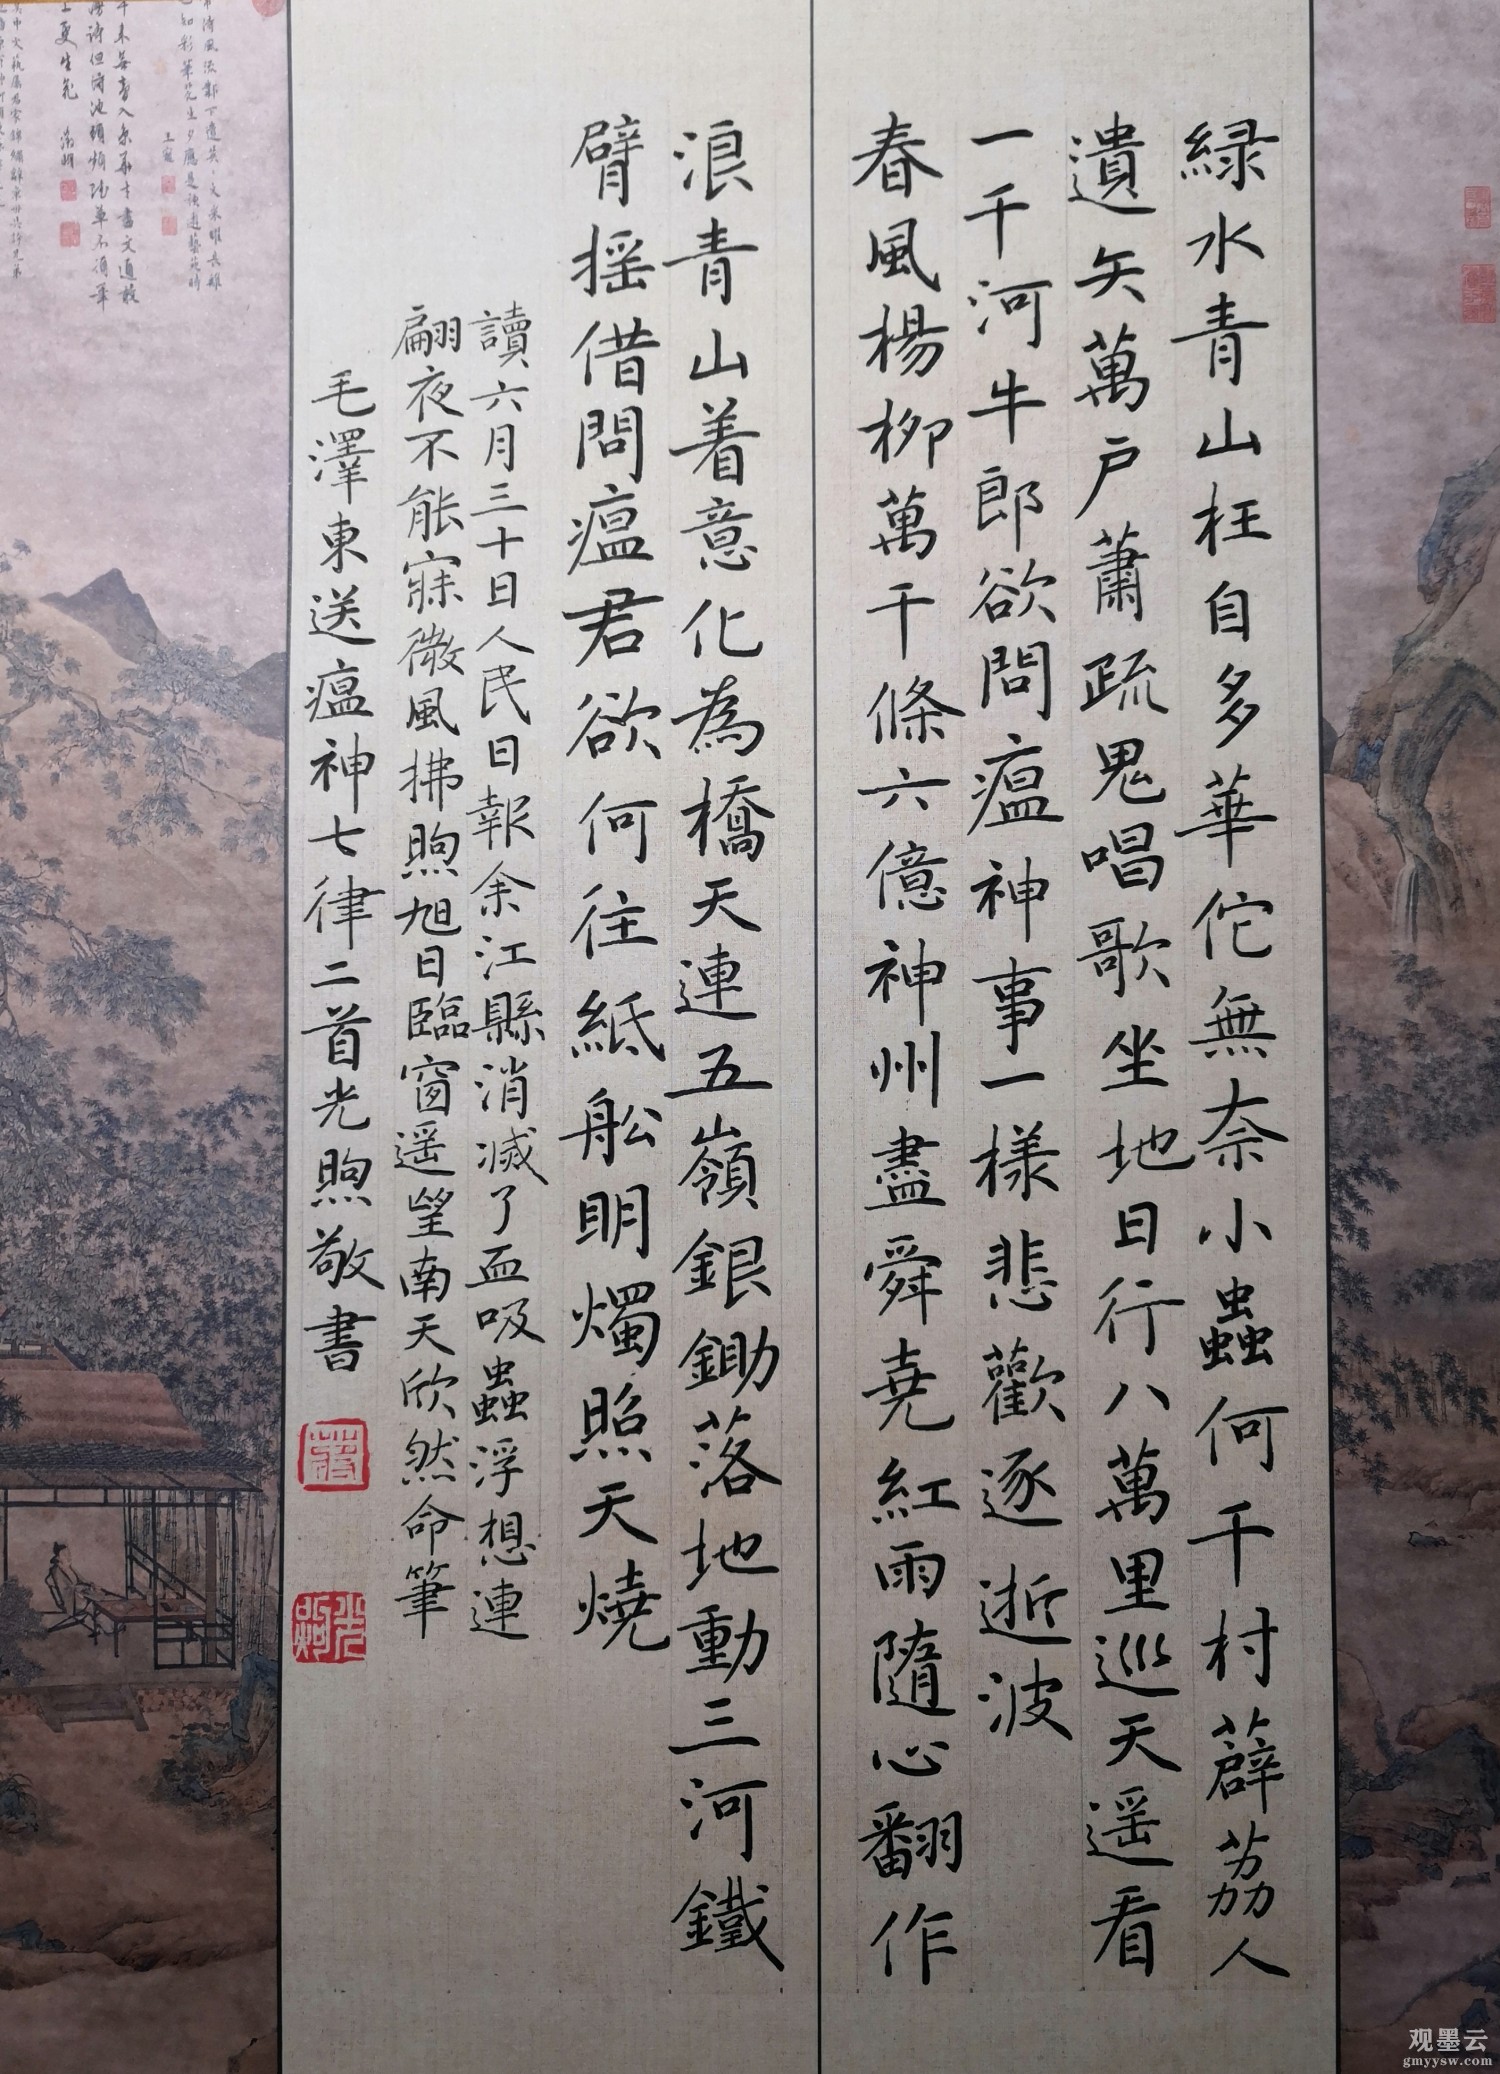 緑水青山枉自多華佗無奈小蟲何千村薜荔人
遺矢萬户蕭疏鬼唱歌坐地日行八萬里巡天遥看
一千河牛郎欲問瘟神事一樣悲歡逐逝波
春風楊柳萬千條六億神州盡舜尭紅雨隨心翻作
浪青山着意化為橋天連五嶺銀鋤落地動三河鐵
臂摇借問瘟君欲何往紙舩明燭照天燒
讀六月三十日人民日報余江縣消滅了血吸蟲浮想連
翩夜不能寐微風拂煦旭日臨窗遥望南天欣然命筆
毛澤東送瘟神七律二首光煦敬書
光煦
观墨云
gmyysw.com